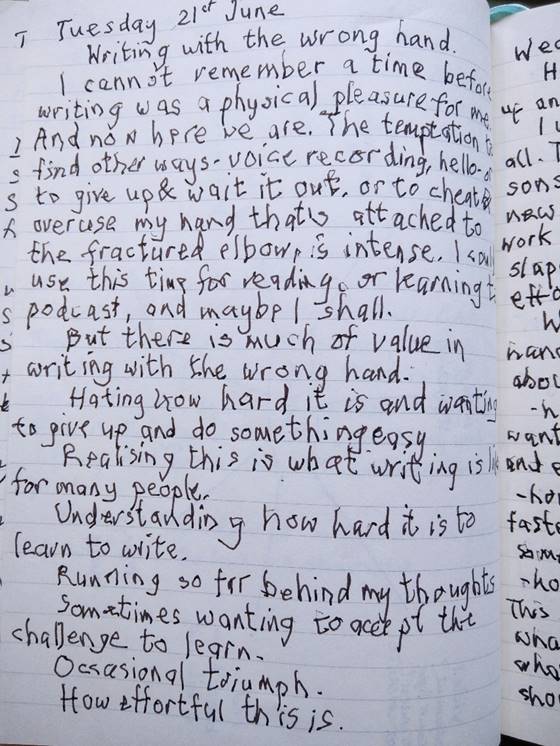 Tuesday 21st June
Writing with the wrong hand.
I cannot remember a time before
writing was a physical pleasure for me.
And now here we are. The temptation to
find other ways - voice recording, hello -
to give up & wait it out, or to cheat &
overuse my hand that is attached to
the fractured elbow, is intense. I could
use this time for reading, or learning to
podcast, and maybe I shall.
But there is much of value in
writing with the wrong hand.
Hating how hard it is and wanting
to give up and do something easy
Realising this is what writing is like
for many people.
Understanding how hard it is to
learn to write.
Running so far behind my thoughts
Sometimes wanting to accept the
challenge to learn.
Occasional triumph.
How effortful this is.
Wed
H
up an
I w
all. T
sons
news
work
slap
effo
h
hand
abou
- h
want
and
- how
faste
som
- ho
This
wha
who
sho